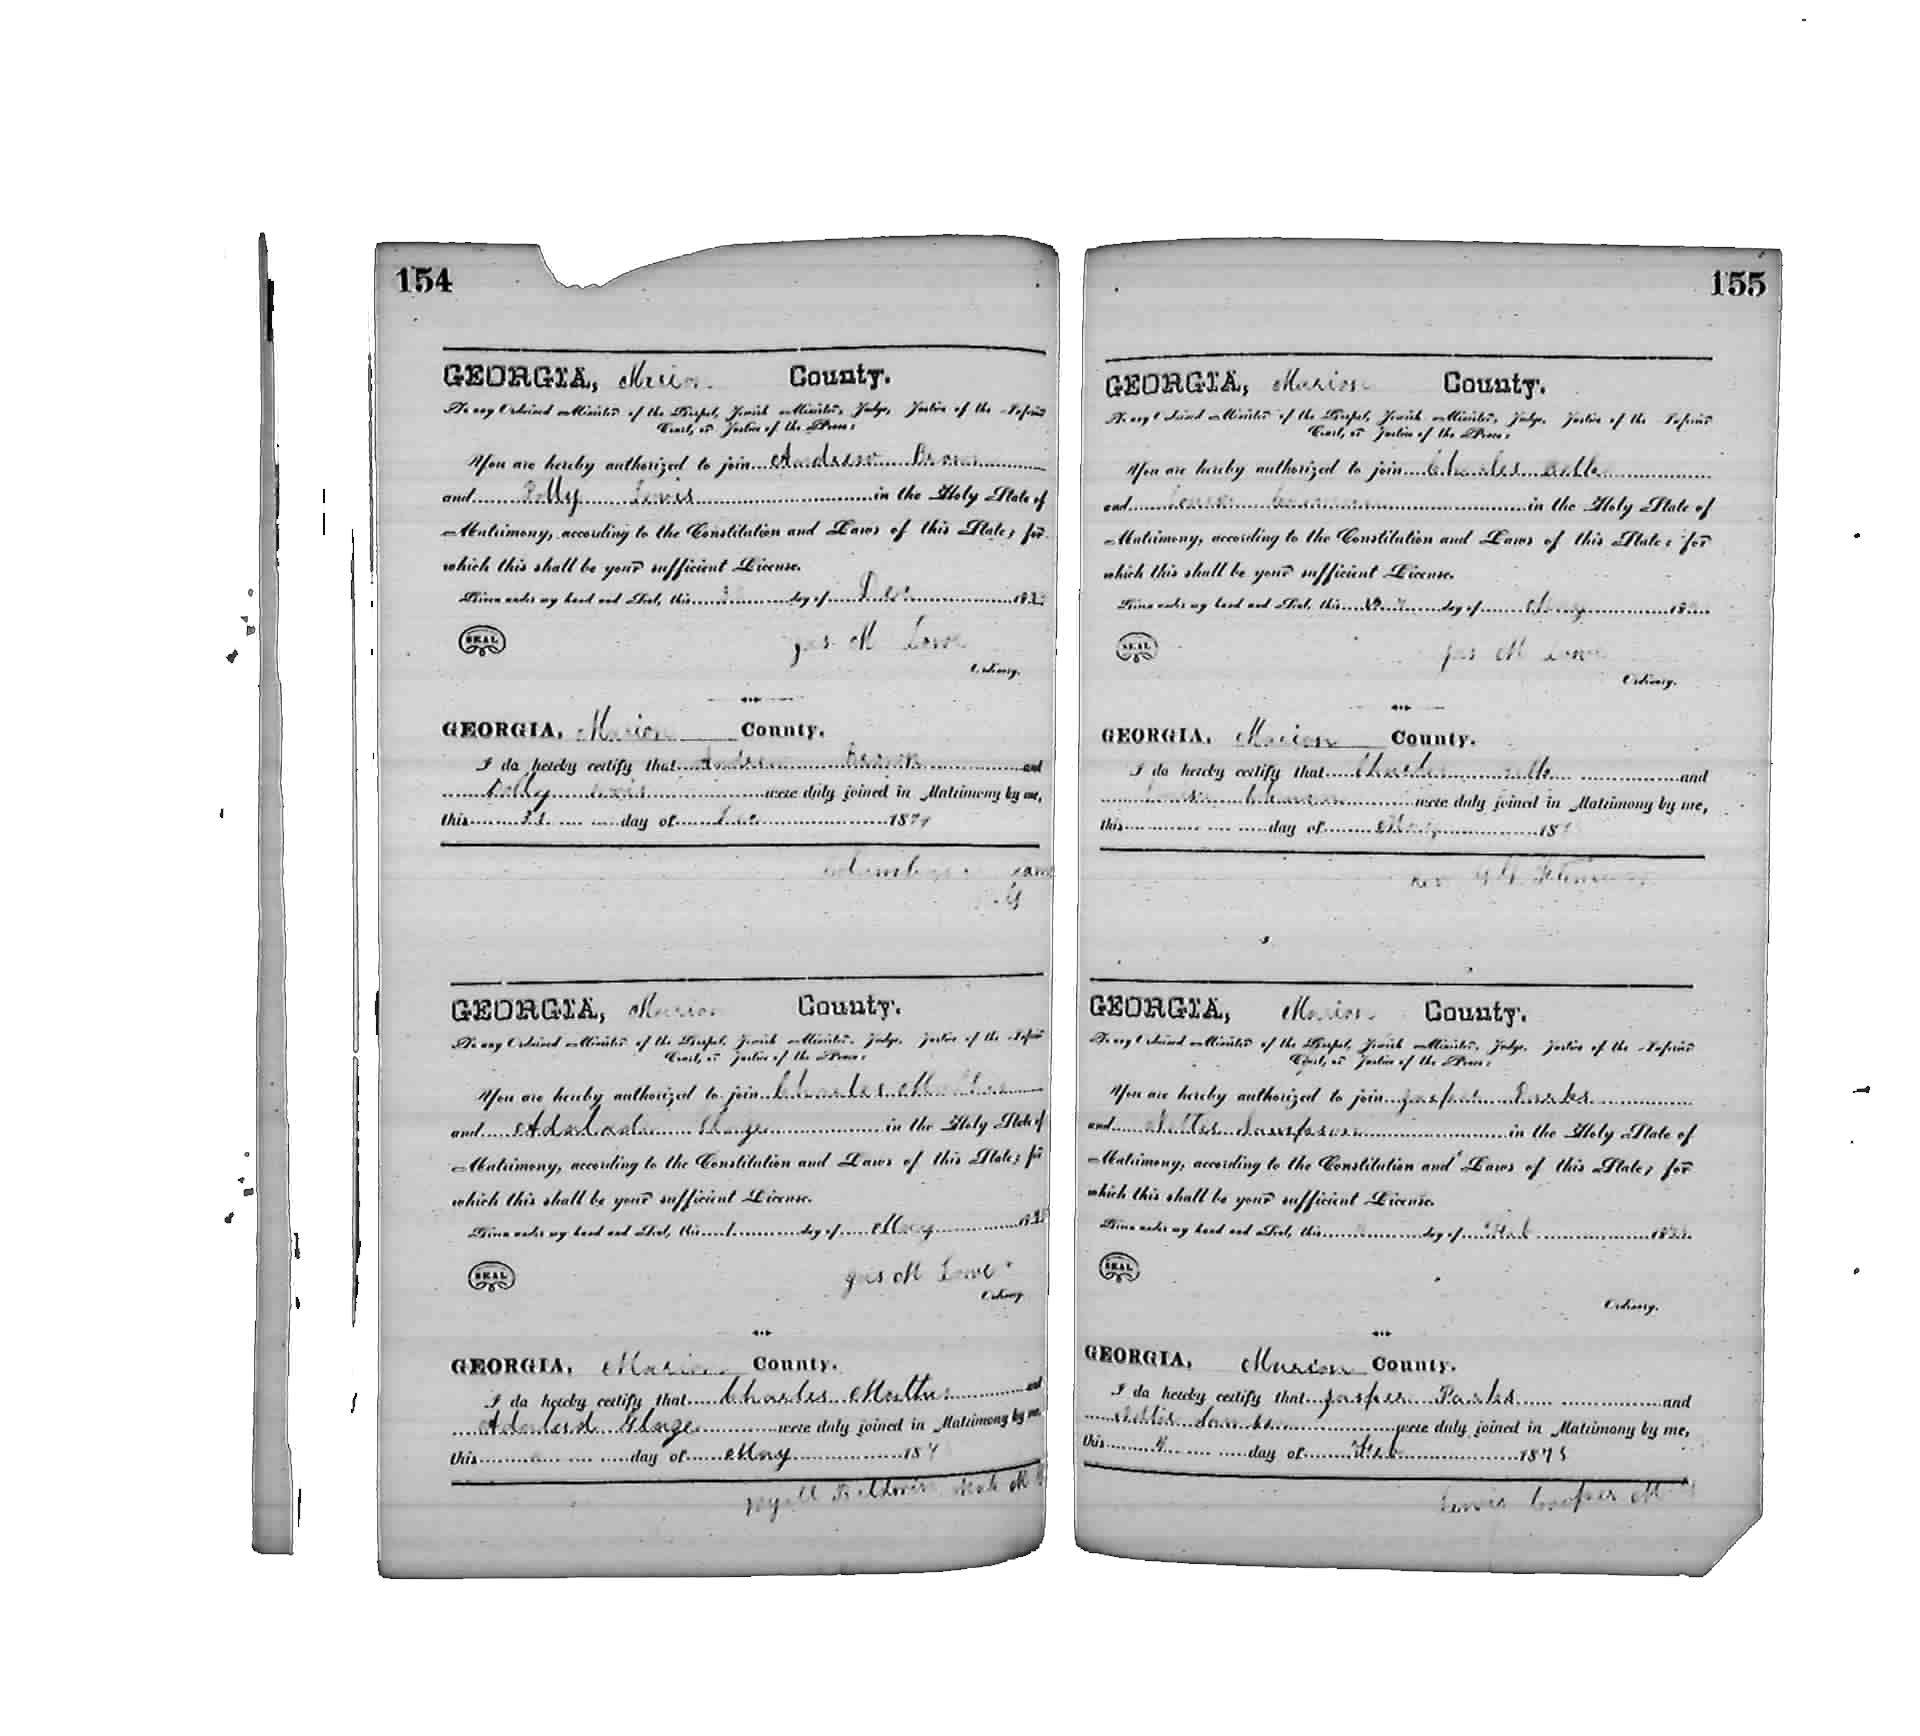 154
GEORGIA, Marion County.
To any Ordained Minister of the Gospel, Jewish Minister, Judge, Justice of the Inferior
Court, or Justice of the Peace:
You are hereby authorized to join Andrew Brown
and Polly Lewis in the Holy State of
Matrimony, according to the Constitution and Laws of this State; for
which this shall be your sufficient License.
Given under my hand and Seal, this day of Dec
SEAL
Jas M Lowe
Ordinary.
GEORGIA, Marion County.
I do hereby certify that Andrew Brown and
Polly Lewis were duly joined in Matrimony by me,
this 31 day of Dec 187
GEORGIA, Marion County.
To any Ordained Minister of the Gospel, Jewish Minister, Judge, Justice of the Inferior
Court, or Justice of the Peace:
You are hereby authorized to join Charles
and Glaze in the Holy State of
Matrimony, according to the Constitution and Laws of this State; for
which this shall be your sufficient License.
Given under my hand and Seal, this 1 day of May
SEAL
Jas M Lowe
Ordinary
GEORGIA, Marion County.
I do hereby certify that Charles and
Glaze were duly joined in Matrimony by me,
this day of May 187
Baldwin
155
GEORGIA, Marion County.
To any Ordained Minister of the Gospel, Jewish Minister, Judge, Justice of the Inferior
Court, or Justice of the Peace:
You are hereby authorized to join Charles
and in the Holy State of
Matrimony, according to the Constitution and Laws of this State; for
which this shall be your sufficient License.
Given under my hand and Seal, this day of May 18
SEAL
Jas M Lowe
Ordinary.
GEORGIA, Marion County.
I do hereby certify that Charles and
were duly joined in Matrimony by me,
this day of May 187
Rev
GEORGIA, Marion County.
To any Ordained Minister of the Gospel, Jewish Minister, Judge, Justice of the Inferior
Court, or Justice of the Peace:
You are hereby authorized to join Jasper Parks
and Nettie in the Holy State of
Matrimony, according to the Constitution and Laws of this State; for
which this shall be your sufficient License.
Given under my hand and Seal, this day of Feb
SEAL
Ordinary.
GEORGIA, Marion County.
I do hereby certify that Jasper Parks and
Nettie were duly joined in Matrimony by me,
this day of Feb 1875
Lewis Cooper